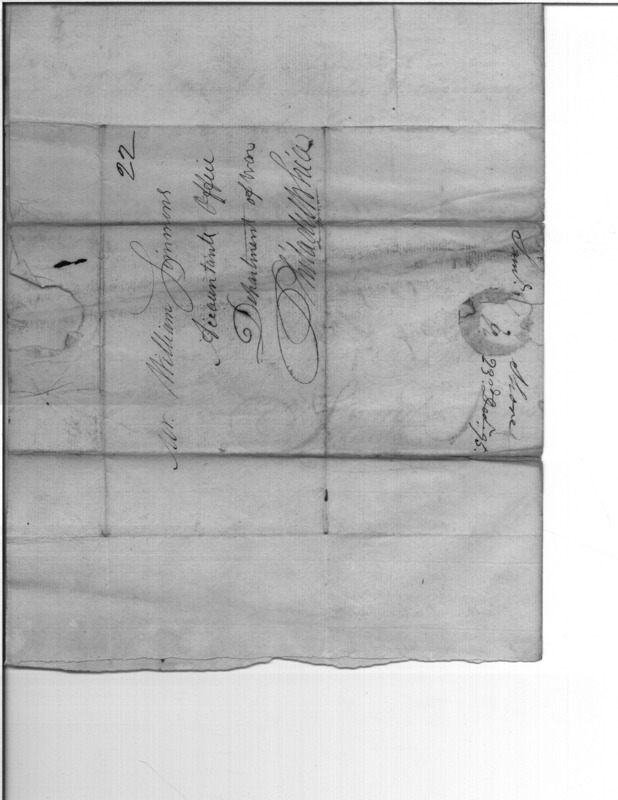 22
Mr. William Simmons
Accountants Office
Department of War
Philadelphia
Saml.
23d. 95.